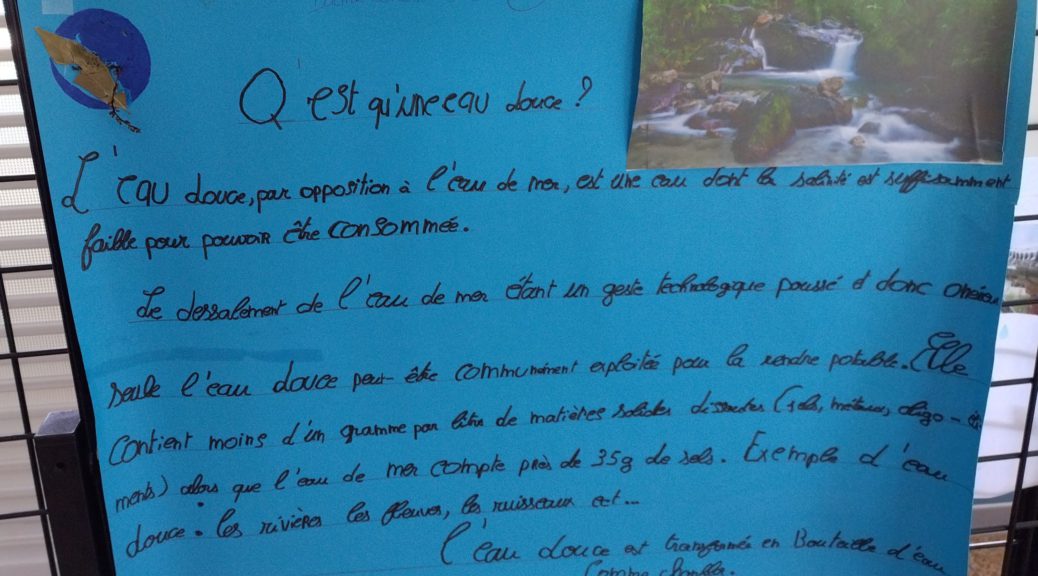 Q'est qu'une eau douce ?
L'eau douce, par opposition à l'eau de mer, est une eau dont la salinité est suffisamment
faible pour pouvoir être consommée.
Le dessalement de l'eau de mer étant un geste technologique poussé et donc onéreux
seule l'eau douce peut être communément exploitée pour la rendre potable. Elle
contient moins d'un gramme par litre de matières solides dissoutes (sels, métaux, oligo-élé
ments) alors que l'eau de mer compte près de 35g de sels. Exemple d'eau
douce : les rivières les fleuves, les ruisseaux ect...
l'eau douce est transformée en Bouteille d'eau
Comme